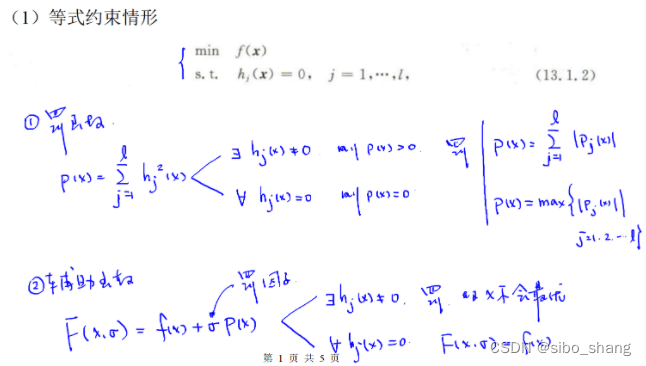 （1）等式约束情形
min f(x)
s.t. h_j(x) = 0, j = 1,⋯,l, (13.1.2)
① 罚函数.
P(x) = \sum_{j=1}^{l} h_j^2(x)
∃ h_j(x) ≠ 0 则 P(x) > 0.
∀ h_j(x) = 0 则 P(x) = 0
罚
P(x) = \sum_{j=1}^{l} |P_j(x)|
P(x) = max{|P_j(x)| j=1.2.⋯l}
② 辅助函数
罚因子
F(x.σ) = f(x) + σ P(x)
∃ h_j(x) ≠ 0. 罚. x不会最优
∀ h_j(x) = 0. F(x.σ) = f(x)
第 1 页 共 5 页
CSDN @sibo_shang